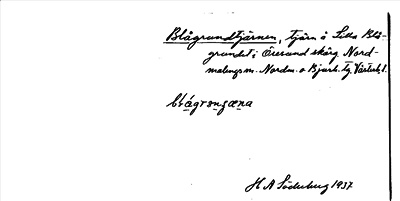 Blågrundtjärnen, tjärn å Lilla Blå-
grundet i Öresund skärg. Nord-
malings sn. Nordm. o Bjurh. tg, Västerb. l.
blágronʒæna
H A Söderberg 1937